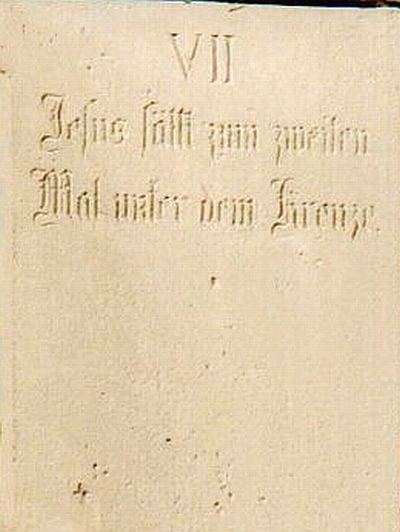 VII
Jesus fällt zum zweiten
Mal unter dem Kreuze.